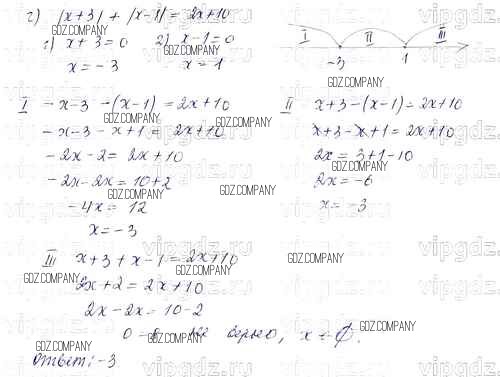 г) |x+3| + |x-1| = 2x+10
1) x+3=0 2) x-1=0
x=-3 x=1
I II III
-3 1
I -x-3 -(x-1) = 2x+10
-x-3-x+1 = 2x+10
-2x-2 = 2x+10
-2x-2x = 10+2
-4x = 12
x=-3
II x+3-(x-1) = 2x+10
x+3-x+1 = 2x+10
2x = 3+1-10
2x = -6
x = -3
III x+3+x-1 = 2x+10
2x+2 = 2x+10
2x-2x = 10-2
0 = 8 верно, x = ∅.
Ответ: -3
GDZ.COMPANY
vipgdz.ru